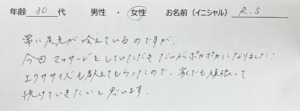 年齢 30 代 男性 ・ 女性 お名前（イニシャル） R.S
常に足先が冷えているのですが、
今回マッサージをしていただき だいぶポカポカになりました！
エクササイズも教えてもらったので、家でも頑張って
続けていきたいと思います。